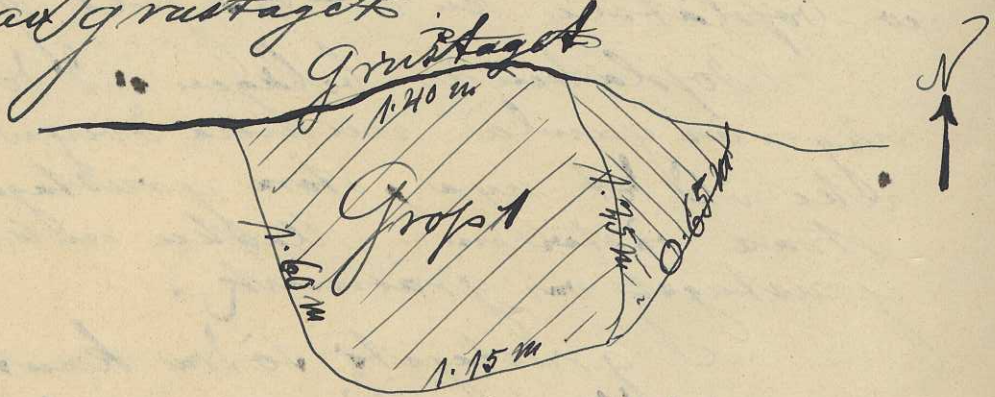 grustaget
Grustaget
N
1.40 m
Grop 1
1.60 m
1.45 m.
0.65 m
1.15 m